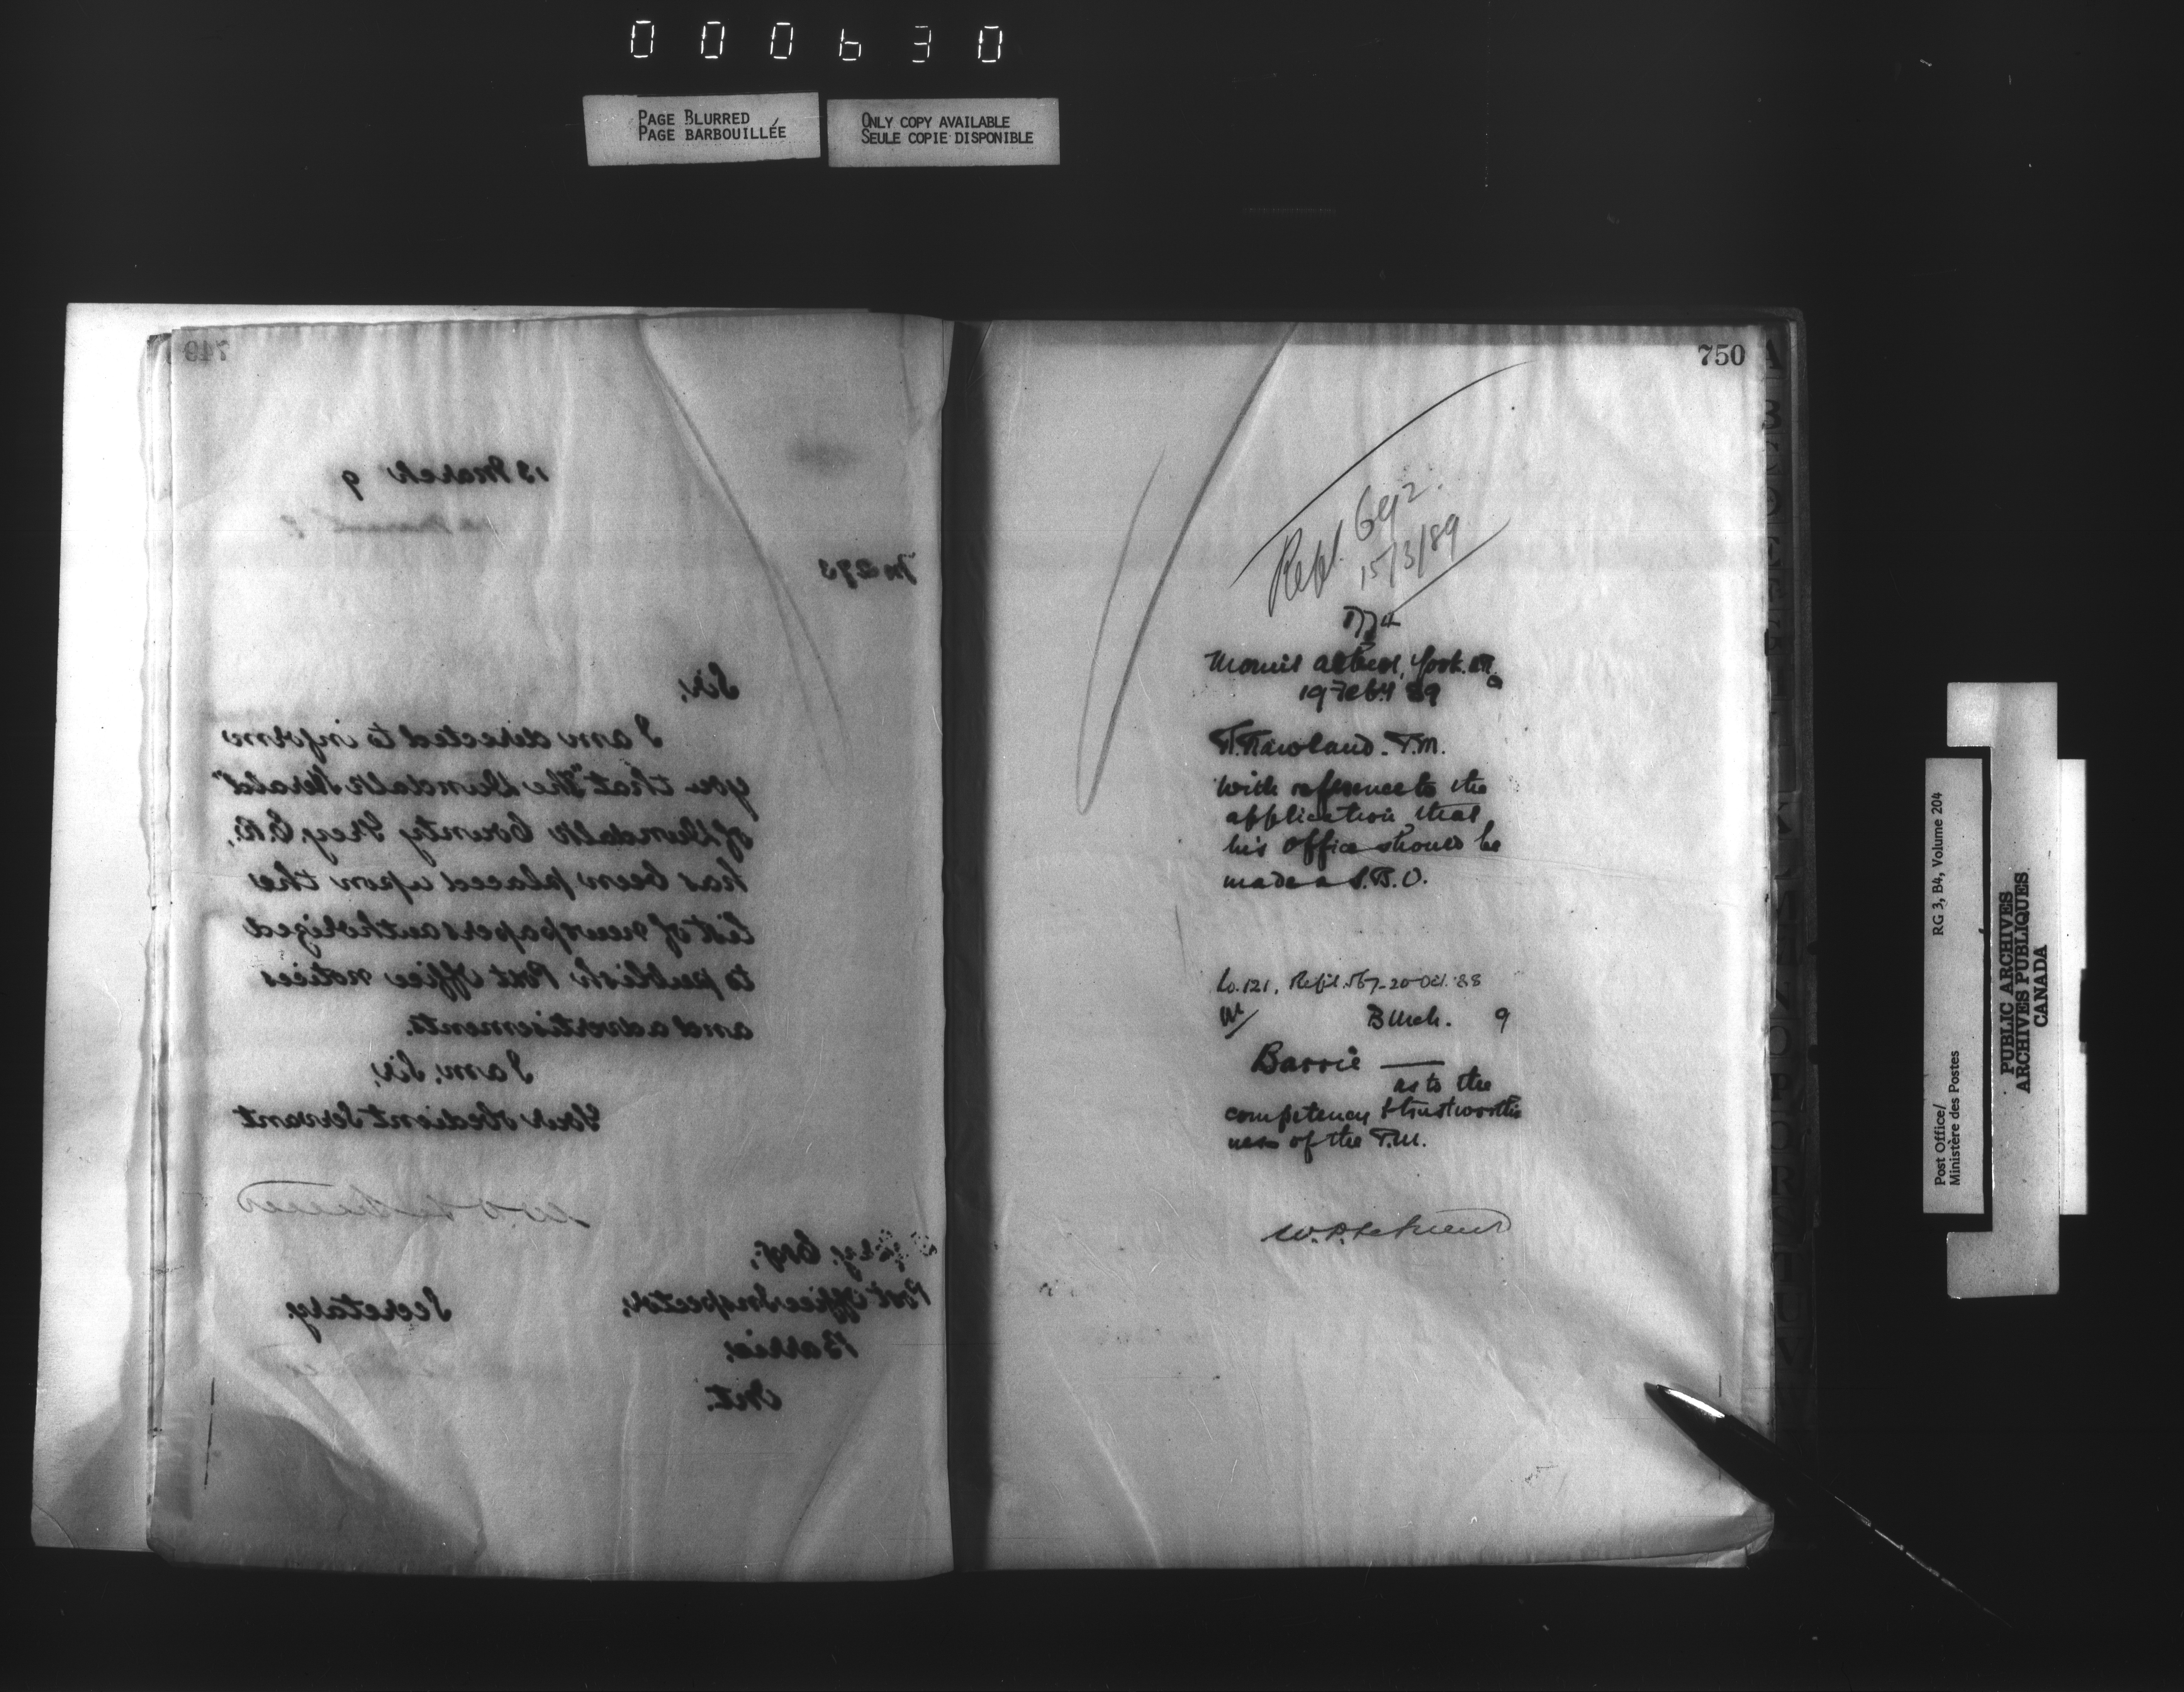 000630
PAGE BLURRED
PAGE BARBOUILLÉE
ONLY COPY AVAILABLE
SEULE COPIE DISPONIBLE
749
13 March 9
M 273
Sir,
I am directed to inform
you that "The Dundalk Herald"
of Dundalk County Grey, E.R.,
has been placed upon the
list of newspapers authorized
to publish Post Office notices
and advertisements.
I am, Sir,
Your obedient Servant
Esq.,
Post Office Inspector,
Secretary.
Barrie,
Ont.
750
Repl. 692.
15/3/89
19 Feby 89
P.M.
with reference to the
application that
his office should be
made a S.B.O.
Co. 121, Repl. 567-20 Oct. 88
B Mch. 9
Barrie —
as to the
competency & trustworthi
ness of the P.M.
Post Office/
Ministère des Postes
RG 3, B4, Volume 204
PUBLIC ARCHIVES
ARCHIVES PUBLIQUES
CANADA